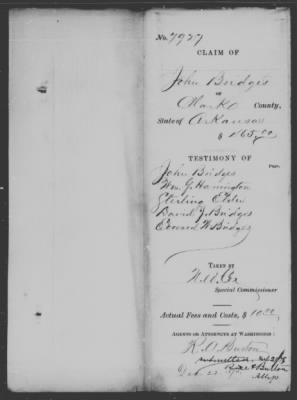 No. 7927
CLAIM OF
John Bridges
OF
Clark County,
State of Arkansas
$ 165.00
TESTIMONY OF
PAGE.
John Bridges
Wm. G. Harrington
Sterling
David J. Bridges
Edward W. Bridges
TAKEN BY
W. W. Cox
Special Commissioner
Actual Fees and Costs, $ 10.00
AGENTS OR ATTORNEYS AT WASHINGTON:
Burton
submitted
Dec 22
Attys